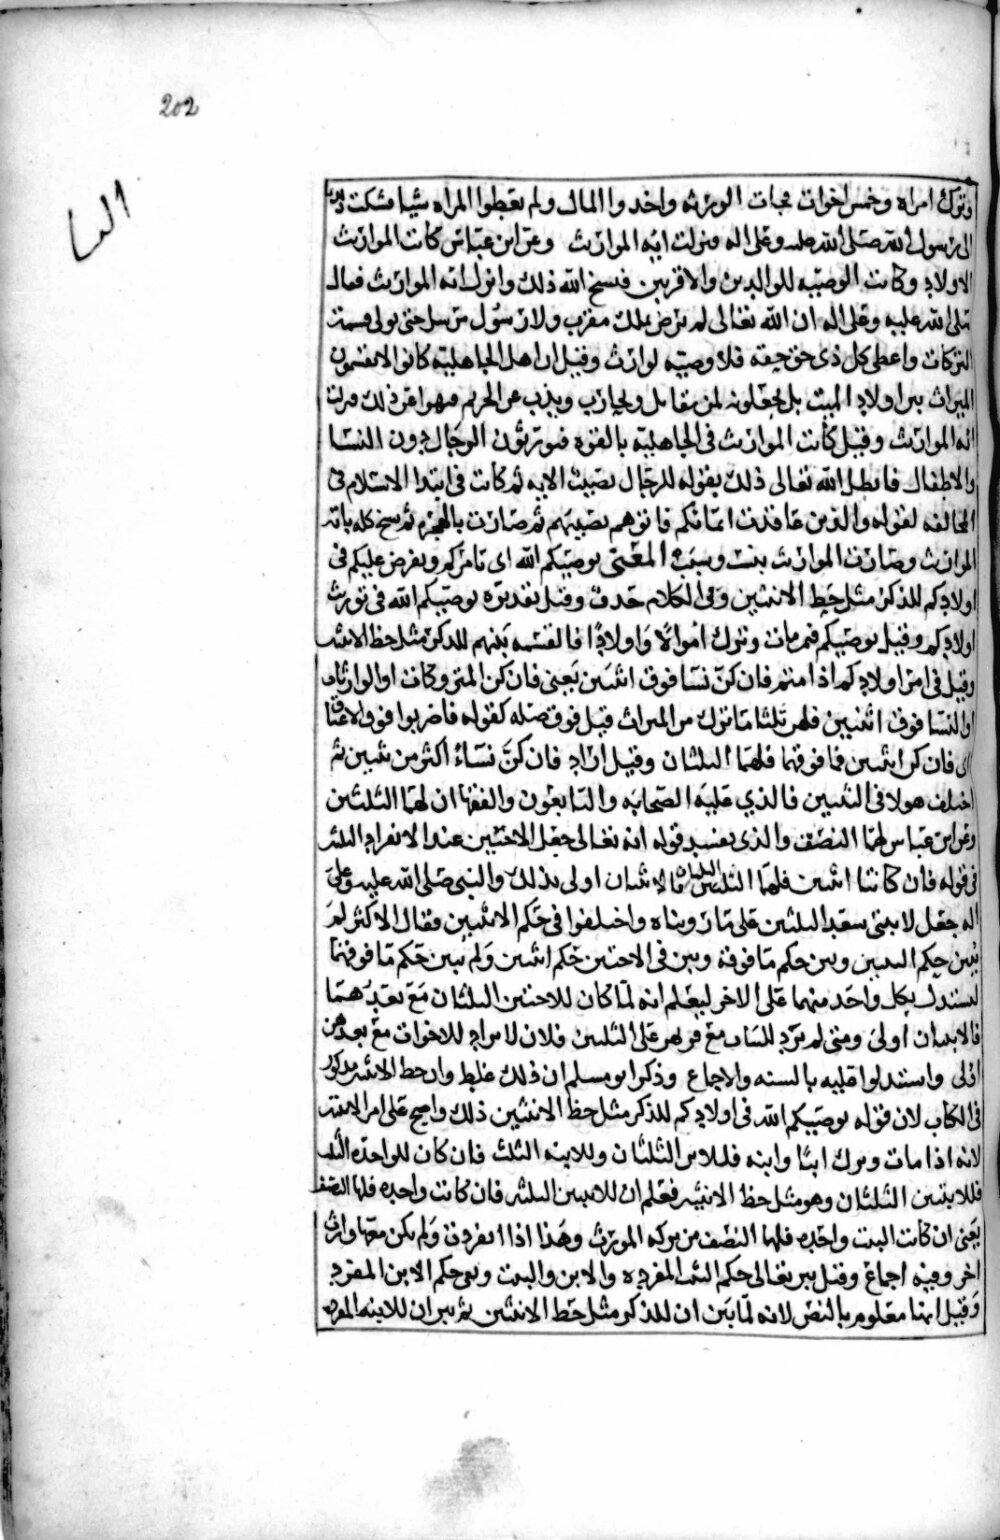 202
النسا
وترك امراه وخمس اخوات فجات الورثه واخدوا المال ولم يعطوا المراه شيا فشكت ذلك
الى رسول الله صلى الله عليه وعلى اله ونزلت ايه الموارث وعن ابن عباس كانت الموارث
للاولاد وكانت الوصيه للوالدين والاقربين فنسخ الله ذلك وانزل ايه الموارث فقال
صلى الله عليه وعلى اله ان الله تعالى لم يرض بملك مقرب ولا رسول مرسل حتى تولى قسمة
التركات واعطى كل ذى حق حقه فلا وصيه لوارث وقيل ان اهل الجاهليه كانوا لا يقسمون
الميراث بين اولاد الميت بل يجعلونه لمن يقاتل ويحارب ويذب عن الحريم فنزلت
ايه الموارث وقيل كانت الموارث فى الجاهليه بالقوه فيورثون الرجال دون النسا
والاطفال فابطل الله تعالى ذلك بقوله للرجال نصيب الايه ثم كانت فى ابتدا الاسلام فى
المحالفه لقوله والذين عاقدت ايمانكم فاتوهم نصيبهم ثم صارت بالهجره ثم نسخ كله بايه
الموارث وصارت الموارث بنسب وسبب المعنى يوصيكم الله اى يامركم ويفرض عليكم فى
اولادكم للذكر مثل حظ الانثيين وفى الكلام حدف وقيل تقديره يوصيكم الله فى تورث
اولادكم وقيل يوصيكم فيمن مات وترك اموالا واولادا فالقسمه بينهم للذكر مثل حظ الانثيين
وقيل فى امر اولادكم اذا متم فان كن نسا فوق اثنتين يعنى فان كن المتروكات او الوارثات
او النسا فوق اثنتين فلهن ثلثا ما ترك من الميراث قيل فوق صله كقوله فاضربوا فوق الاعناق
اى فان كن اثنتين فما فوقهما فلهما الثلثان وقيل اراد فان كن نساء اكثر من ثنتين ثم
اختلف هولا فى الثنتين فالذي عليه الصحابه والتابعون والفقها ان لهما الثلثين
وعن ابن عباس لهما النصف والذى يفسد قوله انه تعالى جعل للاختين عند الانفراد الثلثين
فى قوله فان كانتا اثنتين فلهما الثلثان فالابنتان اولى بذلك والنبى صلى الله عليه وعلى
اله جعل لابنتى سعد الثلثين على ما رويناه واختلفوا فى حكم الابنتين فقال الاكثر لم
يبين حكم البنتين وبين حكم ما فوقه وبين فى الاختين حكم اثنتين ولم يبين حكم ما فوقهما
ليستدل بكل واحد منهما على الاخر ليعلم انه لما كان للاختين الثلثان مع بعدهما
فالابنتان اولى ومتى لم يزد للبنات مع قربهن على الثلثين فلان لا يزاد للاخوات مع بعدهن
اولى واستدلوا عليه بالسنه والاجماع وذكر ابو مسلم ان ذلك غلط وان حظ الابنتين مدكور
فى الكتاب لان قوله يوصيكم الله فى اولادكم للذكر مثل حظ الانثيين ذلك واضح على امر الابنتين
لانه اذا مات وترك ابنا وابنه فللابن الثلثان وللابنه الثلث فان كان للواحده الثلث
فللابنتين الثلثان وهو مثل حظ الانثيين فعلم ان للابنتين الثلثين فان كانت واحده فلها النصف
يعنى ان كانت البنت واحده فلها النصف من تركه المورث وهذا اذا انفردت ولم يكن معها وارث
اخر وفيه اجماع وقيل بين تعالى حكم البنت المفرده والابن والبنت وبقى حكم الابن المفرد
وقيل انها معلوم بالنص لانه لما بين ان للذكر مثل حظ الانثيين ثم بين ان للابنه المفرده